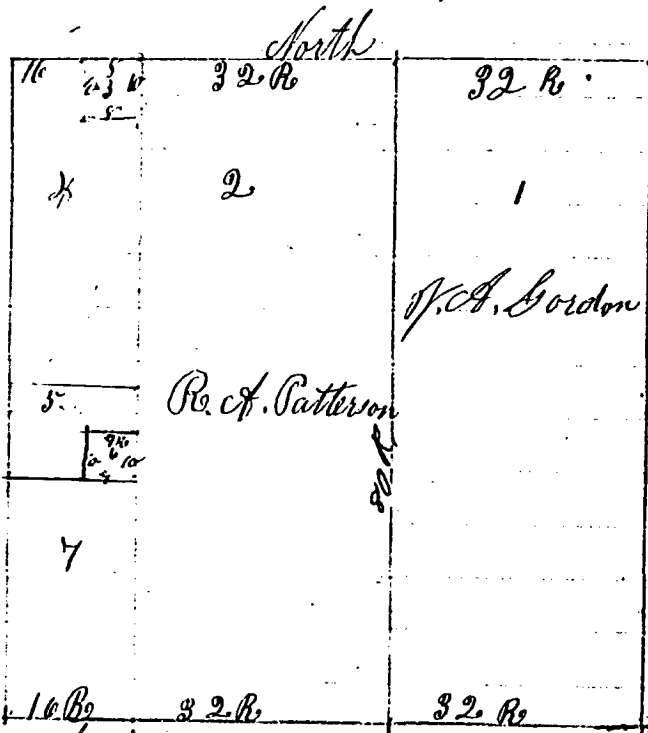 North
16 32 R 32 R
3
4 2 1
W. A. Gordon
5. R. A. Patterson
6
80 R
7
16 R 32 R 32 R